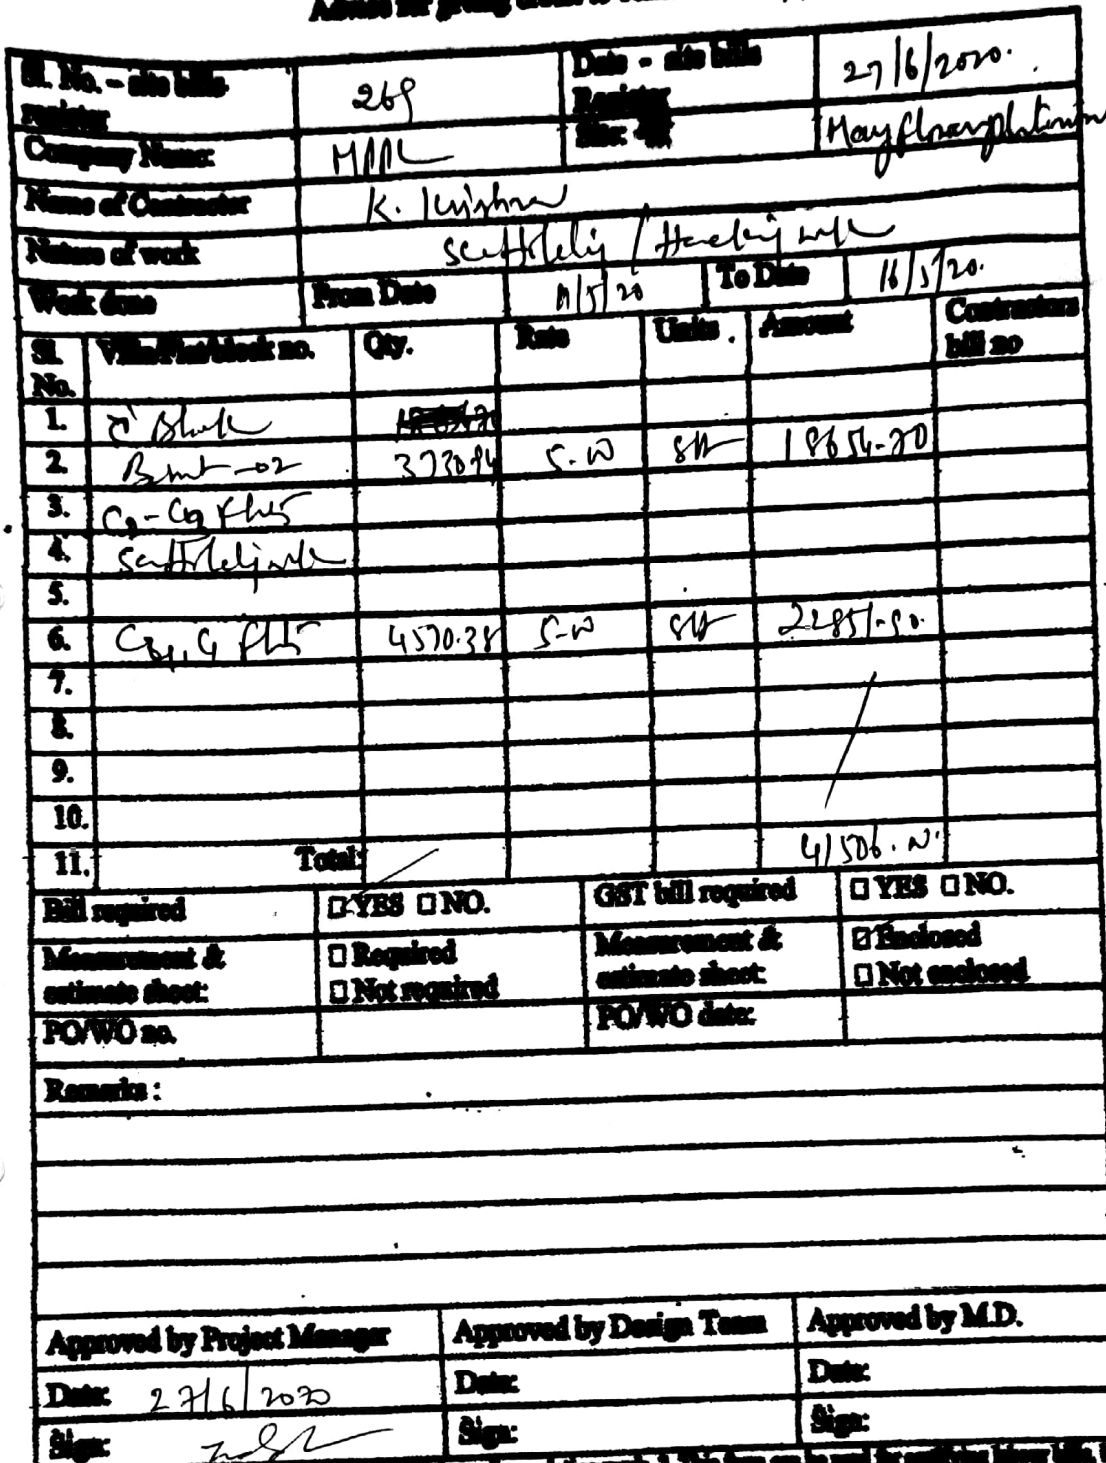 Advice for giving credit to
Sl. No. – site bills register 269 Date - site bills Register 27/6/2020.
Company Name: MPPL Site: Mayflower platinum
Name of Contractor K. Krishna
Nature of work Scaffolding / Hacking work
Work done From Date 11/5/20 To Date 16/5/20.
Sl. No. Villa/Flat/block no. Qty. Rate Units . Amount Contractors bill no
1. 'C' Block
2. -02 3730.94 5-00 Sft 18654-70
3. flats
4. Scaffolding work
5.
6. flats 4570.38 5-00 Sft 22851-90.
7.
8.
9.
10.
11. Total: 41506.00
Bill required ☑ YES ☐ NO. GST bill required ☐ YES ☐ NO.
Measurement & estimate sheet: ☐ Required ☐ Not required Measurement & estimate sheet: ☑ Enclosed ☐ Not enclosed
PO/WO no. PO/WO date:
Remarks :
Approved by Project Manager Approved by Design Team Approved by M.D.
Date: 27/6/2020 Date: Date:
Sign: Sign: Sign: